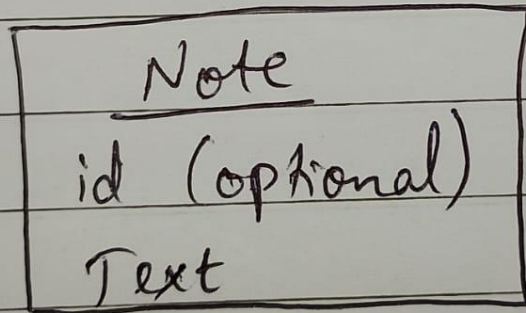 Note
id (optional)
Text